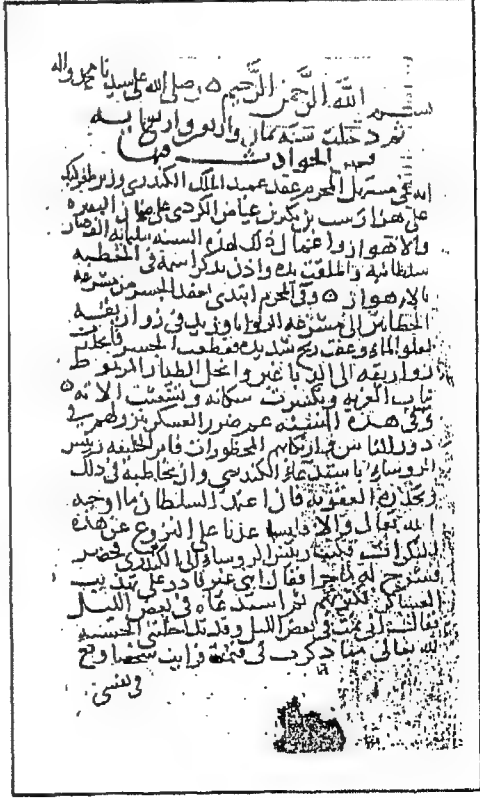 بسم الله الرحمن الرحيم ٥ وصلى الله على سيدنا محمد واله
ثم دخلت سنة ثمان واربعين واربع مايه
فمن الحوادث فيها
انه في مستهل المحرم عقد عميد الملك الكندري وزير طغرلبك
على هزارسب بن بنكير بن عياض الكردي على ضمان البصرة
والاهواز واعمال ذلك لهذه السنة بثلثمائه الف
سلطانيه واطلقت يده واذن بذكر اسمه في الخطبه
بالاهواز ٥ وفي المحرم ابتدي بعقد الجسر من مشرعة
الحطابين الى مشرعه الروايا وزيد في زواريقه
لعلو الماء وعصفت ريح شديده فقطعت الجسر فانحدرت
زواريقه الى الدباغين وانحل الطيار المربوط
بباب الغربه وتكسرت سكانه وتشعثت الاته ٥
وفي هذه السنه عم ضرر العسكر بنزولهم في
دور الناس وارتكابهم المحظورات فامر الخليفه رئيس
الروساء باستدعاء الكندري وان يخاطبه في ذلك
ويحذره العقوبه فان اعتمد السلطان ما اوجبه
الله تعالى والا فليساعدنا على النزوح عن هذه
المنكرات فكتب رئيس الروساء الى الكندري فحضر
فشرح له ما جرا فقال اني غير قادر على تهذيب
العساكر لكثرتهم ثم استدعاه في بعض الليل
فقال اني نمت في بعض الليل وقد تداخلتني الخشيه
لله تعالى مما ذكرت لي فنمت فرايت شخصا وقع
في نفسي